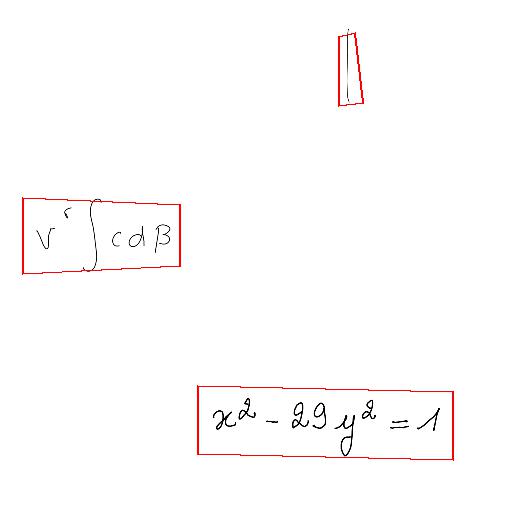 |
v^r ∫ c d β
x^2 - 29y^2 = 1